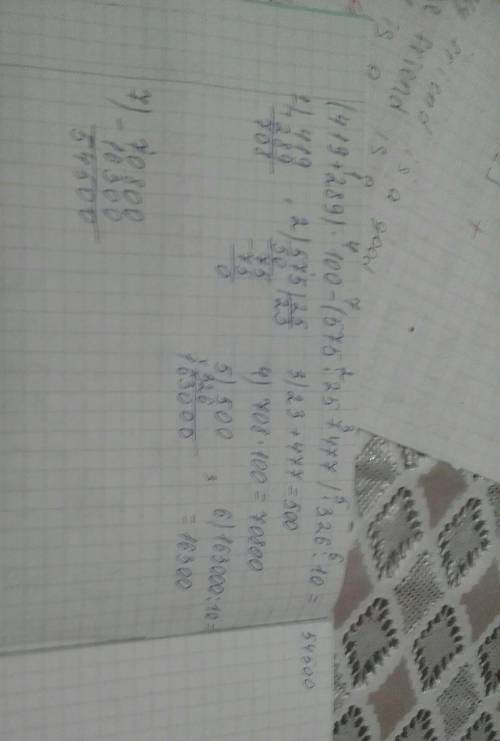 is a
friend is a
(419+289)·100-(575:25+477)·326:10=
54500
1) 419
+289
708
2) 575|25
50 23
75
75
0
3) 23+477=500
4) 708·100=70800
5) 500
326
163000
6) 163000:10=
=16300
7) -70800
16300
54500